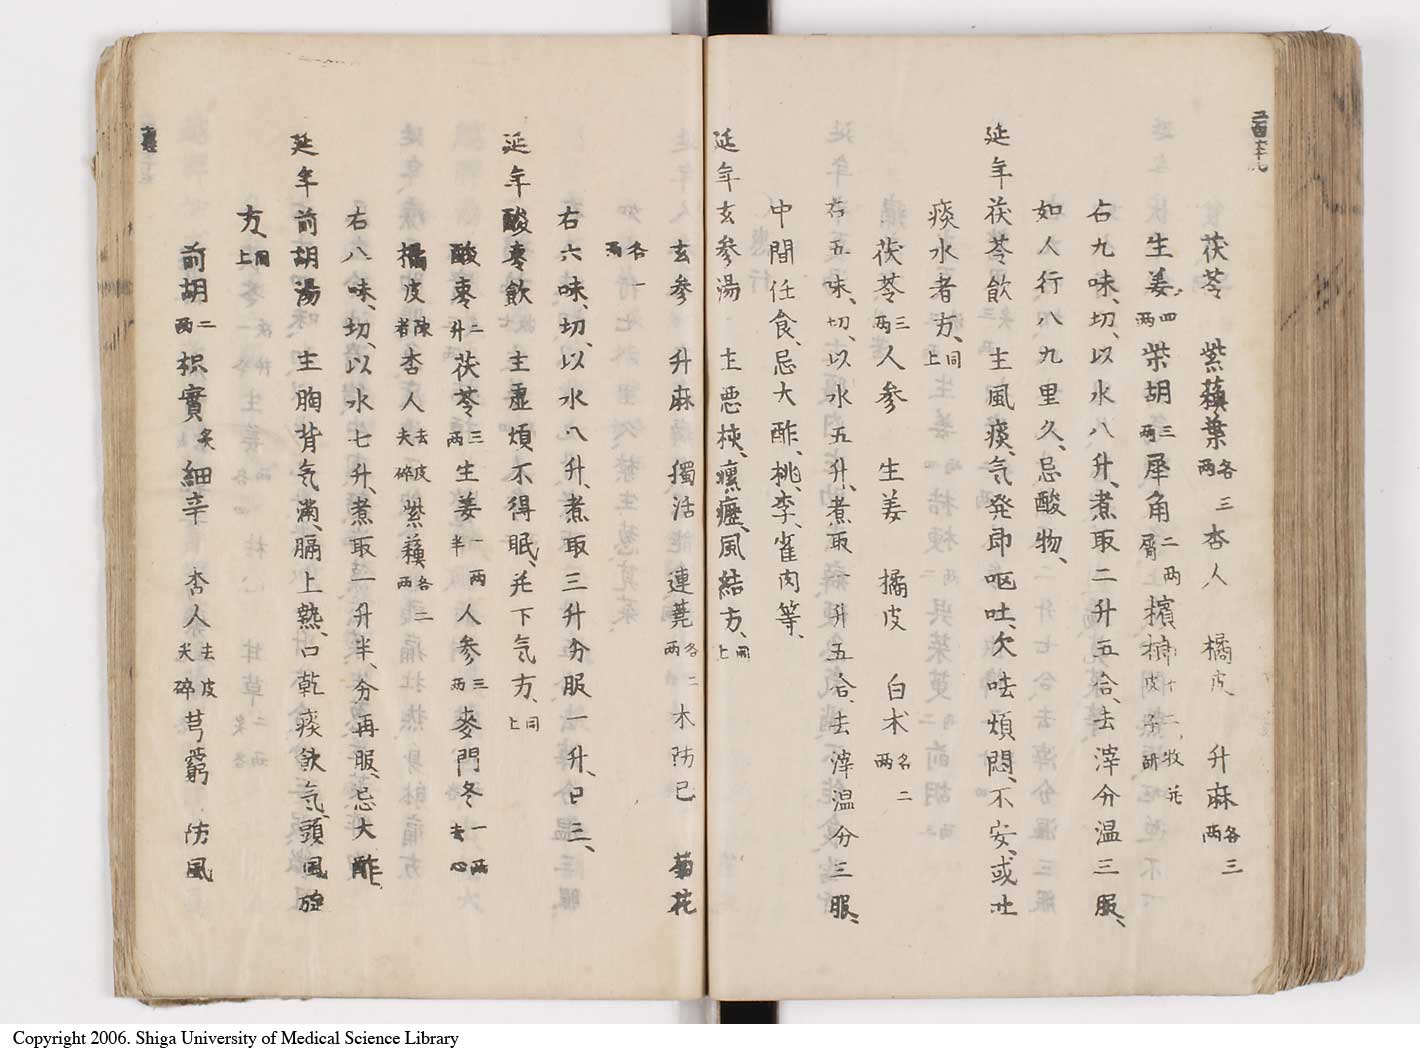 茯苓 紫蘓葉各三両 杏人 橘皮 升麻各三両
生姜四両 柴胡三両 犀角屑二両 檳榔皮子十二、牧研
右九味、切、以水八升、煮取二升五合、去滓分温三服、
如人行八九里久、忌酸物、
延年茯苓飲 主風痰、気発即呕吐、欠呿煩悶、不安、或吐
痰水者方、同上
茯苓三両 人参 生姜 橘皮 白术各二両
右五味、切、以水五升、煮取一升五合、去滓温分三服、
中間任食、忌大酢、桃、李、雀肉等、
延年玄参湯 主悪核、瘰癧、風結方、同上
玄参 升麻 獨活 連莞各二両 木防已 菊花
各一両
右六味、切、以水八升、煮取三升分服一升、日三、
延年酸棗飲 主虚煩不得眠、并下気方、同上
酸棗二升 茯苓三両 生姜一両半 人参三両 麥門冬一両去心
橘皮陳者 杏人去皮尖碎 紫蘓各二両
右八味、切、以水七升、煮取一升半、分再服、忌大酢、
延年前胡湯 主胸背気満、膈上熱、口乾痰飲気、頭風旋
方、同上
前胡二両 枳實炙 細辛 杏人去皮尖碎 芎藭 防風
Copyright 2006. Shiga University of Medical Science Library